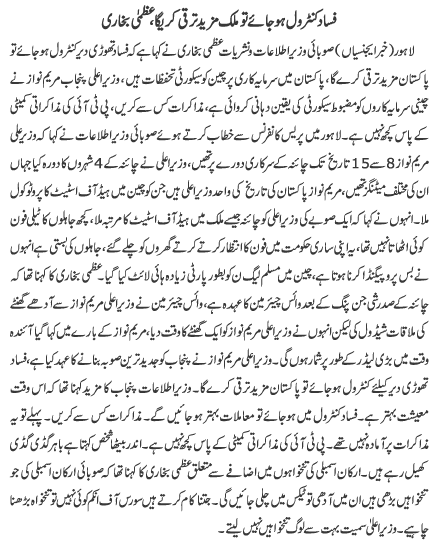 فساد کنٹرول ہو جائے تو ملک مزید ترقی کریگا، عظمیٰ بخاری
لاہور (خبر ایجنسیاں) صوبائی وزیر اطلاعات و نشریات عظمی بخاری نے کہا ہے کہ فساد تھوڑی دیر کنٹرول ہو جائے تو
پاکستان مزید ترقی کرے گا، پاکستان میں سرمایہ کاری پر چین کو سیکورٹی تحفظات ہیں، وزیر اعلی پنجاب مریم نواز نے
چینی سرمایہ کاروں کو مضبوط سیکورٹی کی یقین دہانی کروائی ہے، مذاکرات کس سے کریں، پی ٹی آئی کی مذاکراتی کمیٹی
کے پاس کچھ نہیں ہے۔ لاہور میں پریس کانفرنس سے خطاب کرتے ہوئے صوبائی وزیر اطلاعات نے کہا کہ وزیر علی
مریم نواز 8 سے 15 تاریخ تک چائنہ کے سرکاری دورے پر تھیں، وزیر اعلی نے چائنہ کے 4 شہروں کا دورہ کیا جہاں
ان کی مختلف میٹنگز تھیں، مریم نواز پاکستان کی تاریخ کی واحد وزیر اعلی ہیں جن کو چین میں ہیڈ آف اسٹیٹ کا پروٹوکول
ملا۔ انہوں نے کہا کہ ایک صوبے کی وزیر اعلی کو چائنہ جیسے ملک میں ہیڈ آف اسٹیٹ کا مرتبہ ملا، کچھ جاہلوں کا ٹیلی فون
کوئی اٹھاتا نہیں تھا، یہ اپنی ساری حکومت میں فون کا انتظار کرتے کرتے گھروں کو چلے گئے، جاہلوں کی بستی ہے انہوں
نے بس پروپیگنڈا کرنا ہوتا ہے، چین میں مسلم لیگ ن کو بطور پارٹی زیادہ ہائی لائٹ کیا گیا۔ عظمی بخاری کا کہنا تھا کہ
چائنہ کے صدر شی جن پنگ کے بعد وائس چیئرمین کا عہدہ ہے، وائس چیئرمین نے وزیر اعلی مریم نواز سے آدھے گھنٹے
کی ملاقات شیڈول کی لیکن انہوں نے وزیر اعلی مریم نواز کو ایک گھنٹے کا وقت دیا، مریم نواز کے بارے میں کہا گیا آئندہ
وقت میں بڑی لیڈر کے طور پر شمار ہوں گی۔ وزیر اعلی مریم نواز نے پنجاب کو جدید ترین صوبہ بنانے کا عہد کیا ہے، فساد
تھوڑی دیر کیلئے کنٹرول ہو جائے تو پاکستان مزید ترقی کرے گا۔ وزیر اطلاعات پنجاب کا مزید کہنا تھا کہ اس وقت
معیشت بہتر ہے۔ فساد کنٹرول میں ہو جائے تو معاملات بہتر ہو جائیں گے۔ مذاکرات کس سے کریں۔ پہلے تو یہ
مذاکرات پر آمادہ نہیں تھے۔ پی ٹی آئی کی مذاکراتی کمیٹی کے پاس کچھ نہیں ہے۔ اندر بیٹھا شخص کہتا ہے باہر گڈی گڈی
کھیل رہے ہیں۔ ارکان اسمبلی کی تنخواہوں میں اضافے سے متعلق عظمی بخاری کا کہنا تھا کہ صوبائی ارکان اسمبلی کی جو
تنخواہیں بڑھی ہیں ان میں آدھی تو ٹیکس میں چلی جائیں گی۔ جتنا کام کرتے ہیں سورس آف انکم کوئی نہیں تو تنخواہ بڑھنا
چاہیے۔ وزیر اعلی سمیت بہت سے لوگ تنخواہیں نہیں لیتے۔